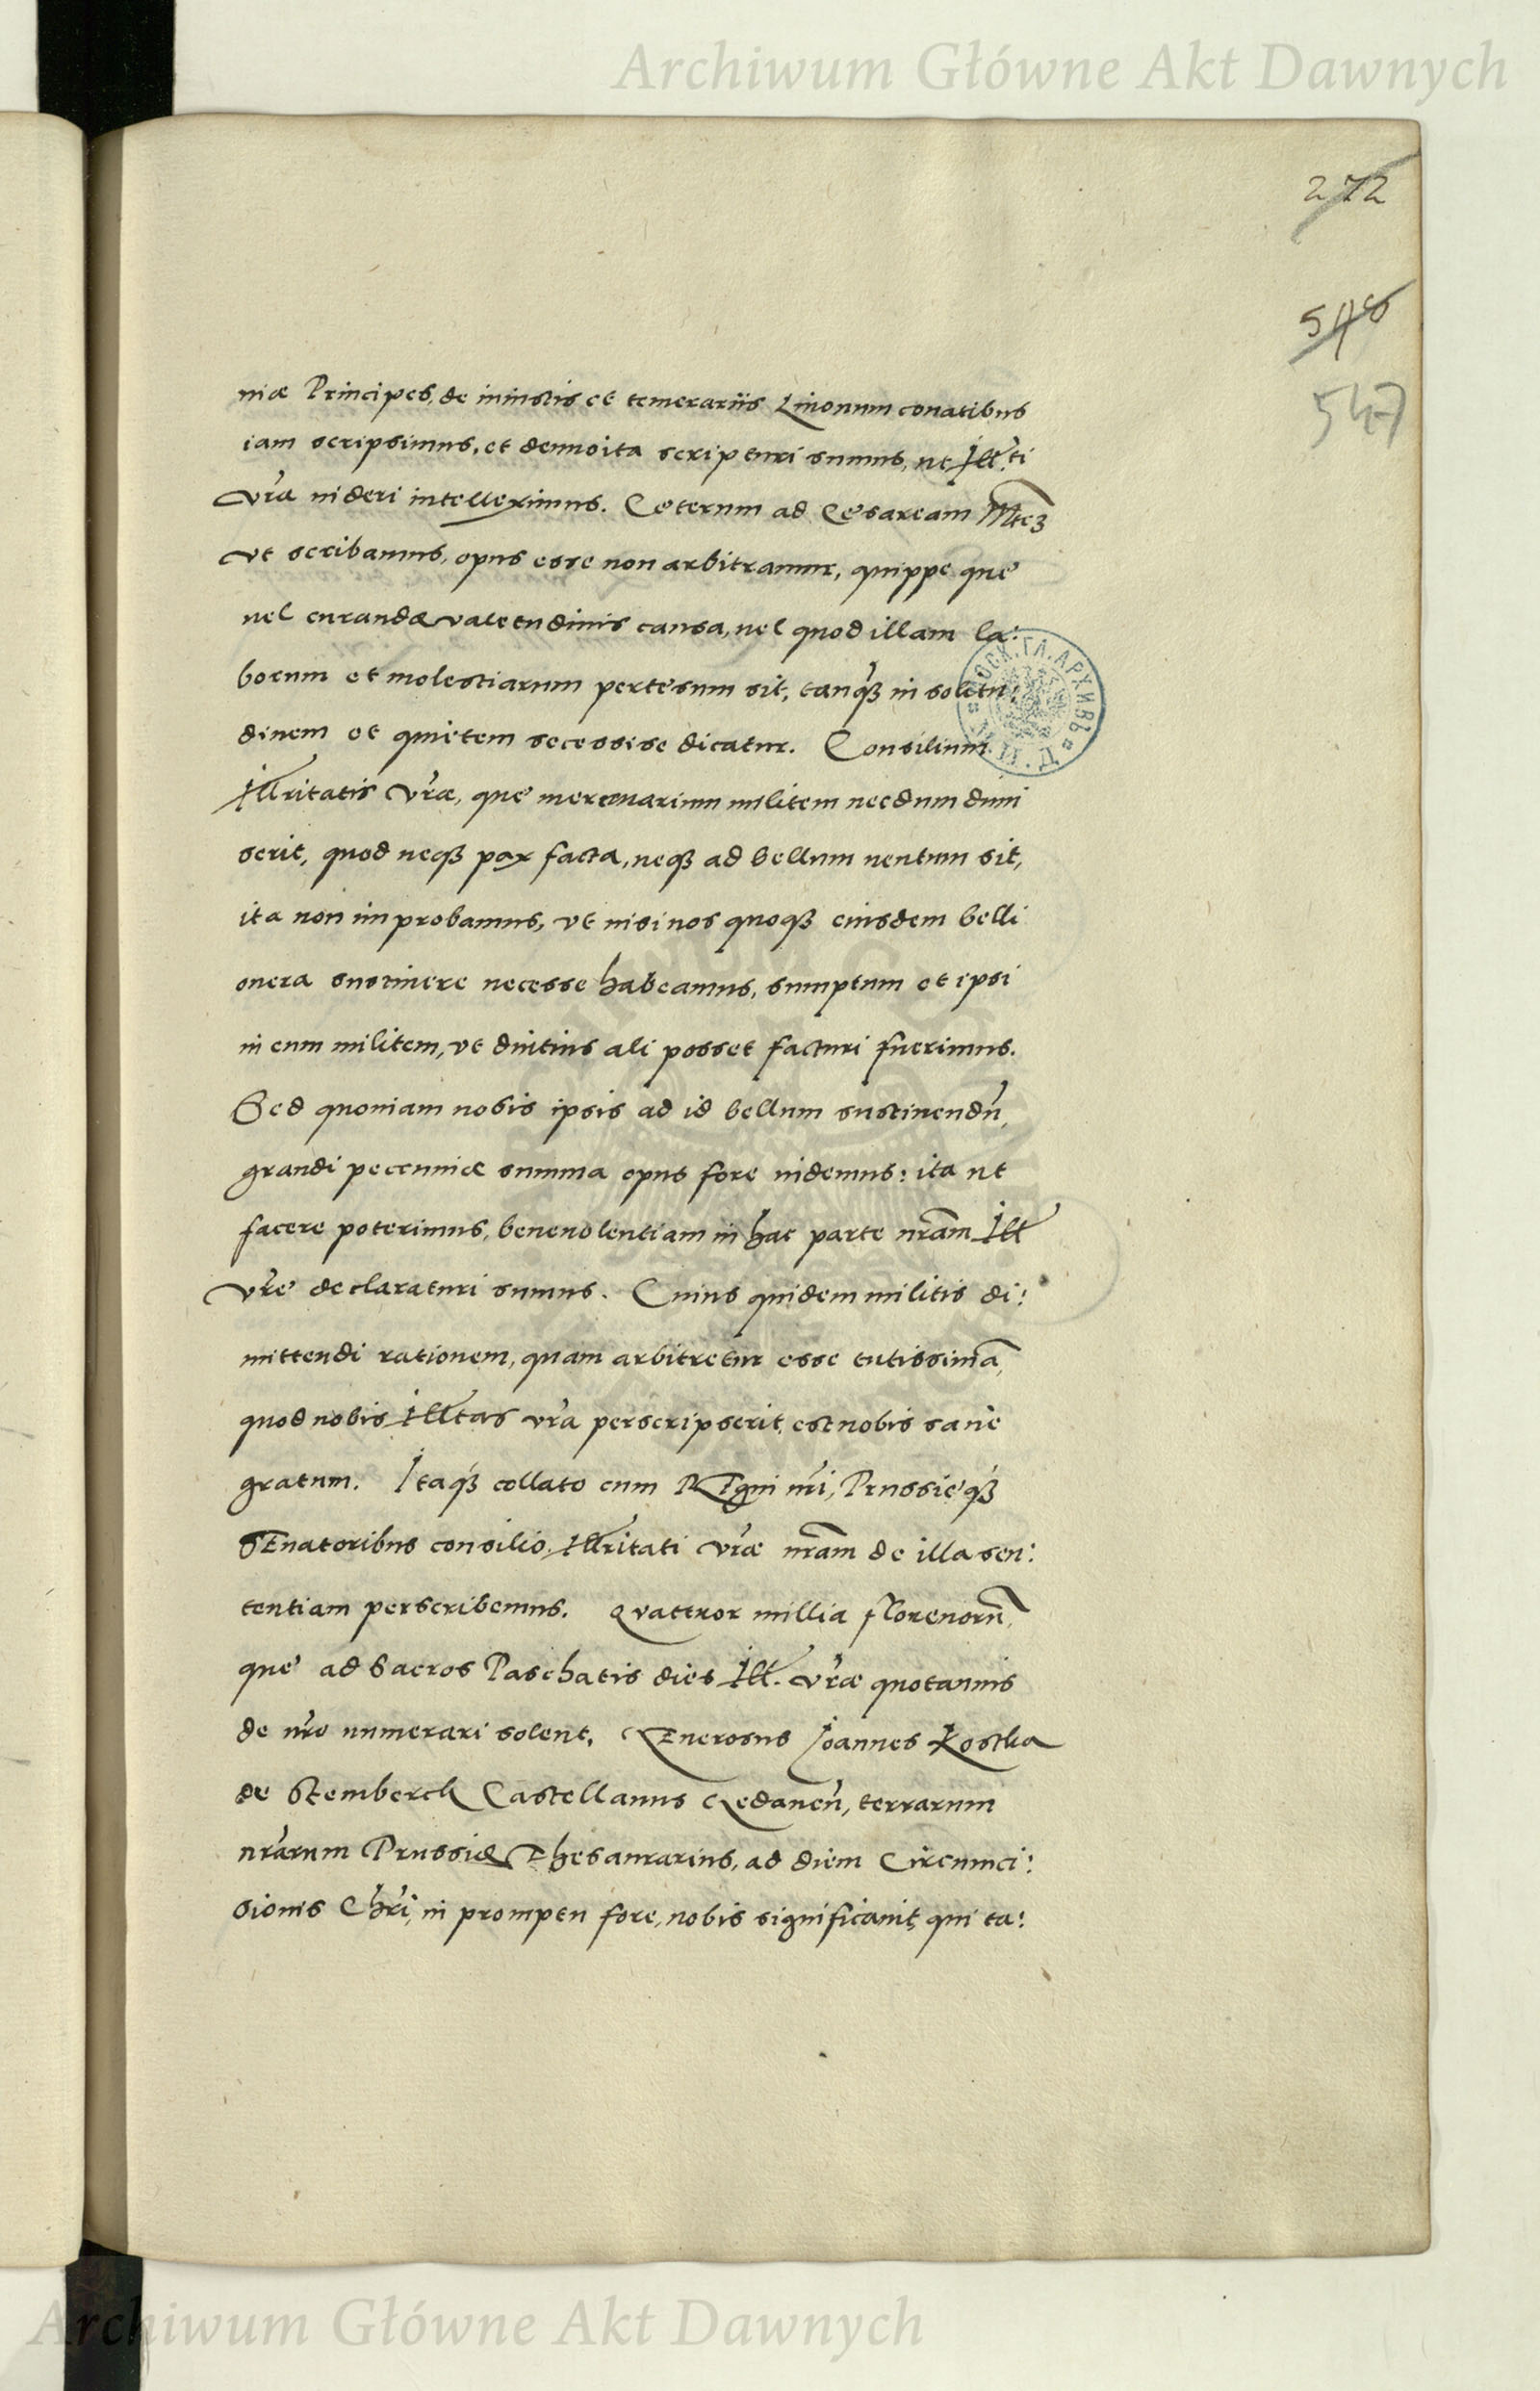 Archiwum Główne Akt Dawnych
272
547
niæ Principes, de iniustis et temerariis Liuonum conatibus
iam scripsimus, et denuo ita scripturi sumus, ut Ill.ti
Vr̃æ uideri intelleximus. Cęterum ad Cęsaream Mtẽꝫ
vt scribamus, opus esse non arbitramur, quippe quę
uel curandæ valetudinis causa, uel quod illam la:
borum et molestiarum pertęsum sit, tanq̃ꝫ in solitu:
dinem et quietem secessise dicatur. Consilium
Illritatis Vr̃æ, quę mercenarium militem necdum dimi
serit, quod neqꝫ pax facta, neqꝫ ad bellum uentum sit,
ita non improbamus, vt nisi nos quoqꝫ eiusdem belli
onera sustinere necesse habeamus, sumptum et ipsi
in eum militem, vt diutius ali posset facturi fuerimus.
Sed quoniam nobis ipsis ad id bellum sustinendũ,
grandi pecuniæ summa opus fore uidemus: ita ut
facere poterimus, beneuolentiam in hac parte nr̃am Ill
Vr̃ę declaraturi sumus. Cuius quidem militis di:
mittendi rationem, quam arbitretur esse tutissimã,
quod nobis Illtas vr̃a perscripserit, est nobis sanè
gratum. Itaqꝫ collato cum REgni nr̃i, Prussięqꝫ
SEnatoribus consilio, Illritati Vr̃æ nr̃am de illa sen:
tentiam perscribemus. Quattuor millia florenorũ,
quę ad Sacros Paschatis dies Ill. Vr̃æ quotannis
de nr̃o numerari solent, GEnerosus Joannes Kostka
de Stemberck Castellanus Gedaneñ, terrarum
nr̃arum Prussiæ THesaurarius, ad diem Circunci:
sionis Chr̃i, in promptu fore, nobis significauit, qui ta:
Archiwum Główne Akt Dawnych